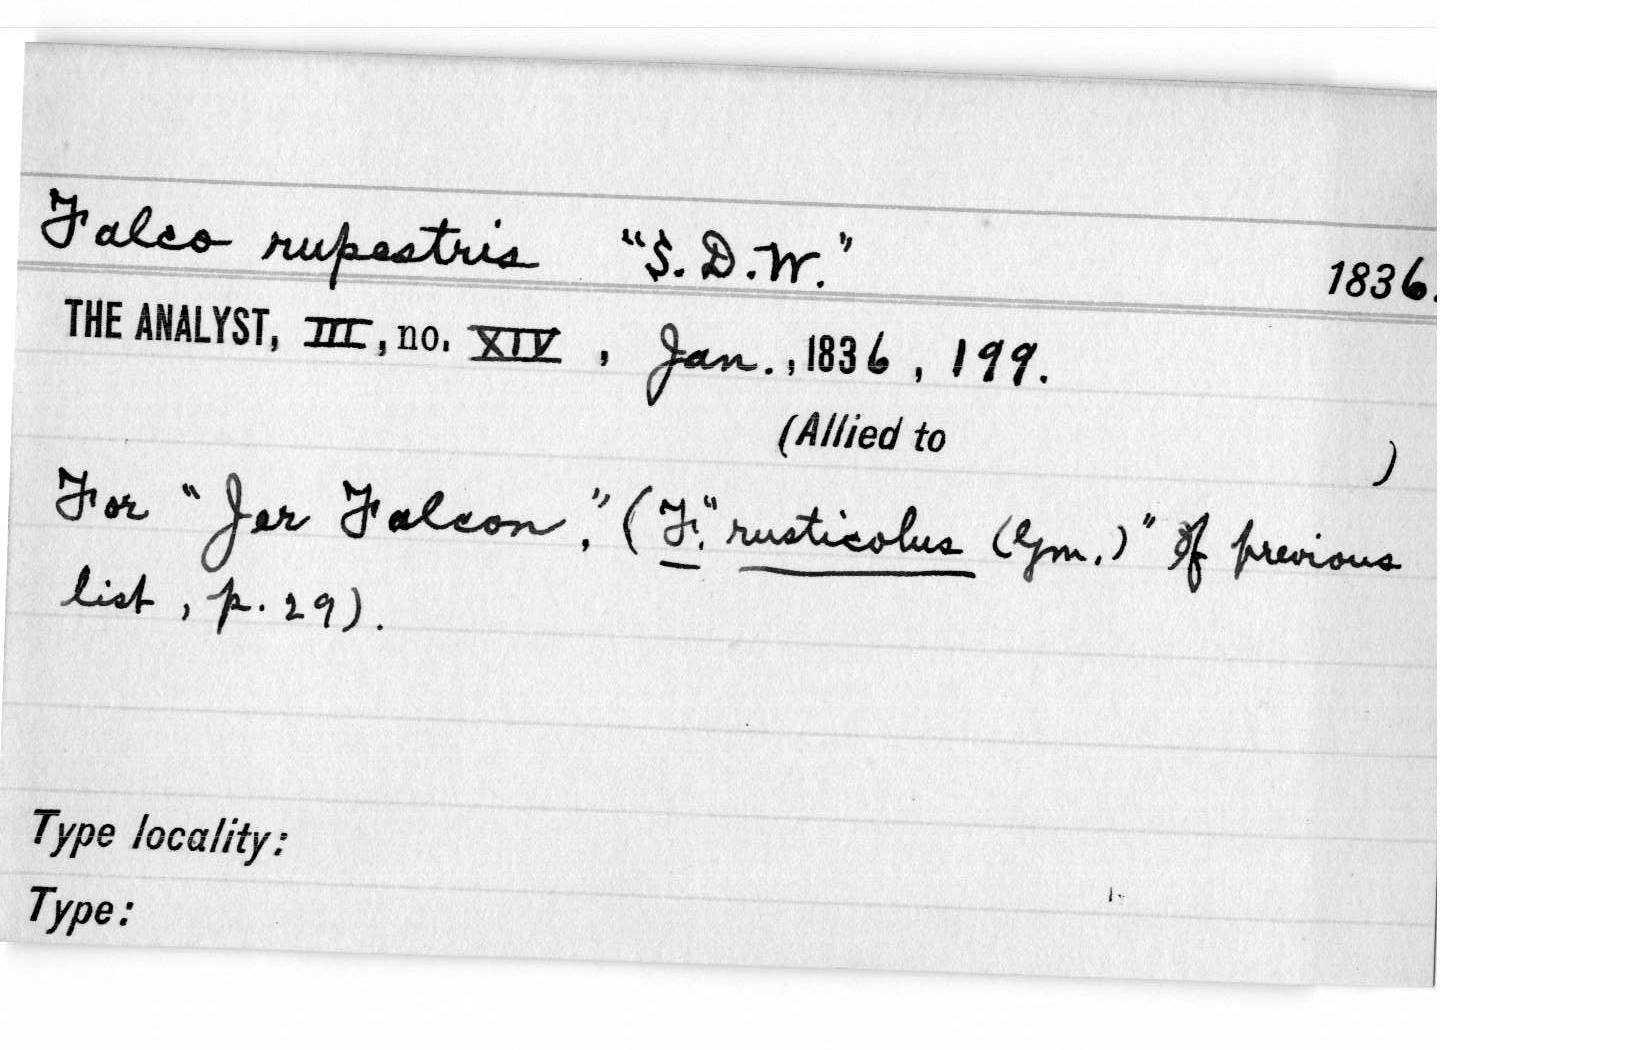 Falco rupestris "S. D. W." 1836.
THE ANALYST, III, no. XIV, Jan., 1836, 199.
(Allied to )
For "Jer Falcon," (F. "rusticolus (Gm.)" of previous
list, p. 29).
Type locality:
Type: